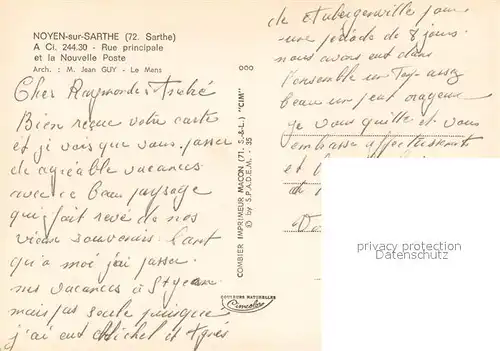 NOYEN-sur-SARTHE (72. Sarthe)
A Ci. 244.30 - Rue principale
et la Nouvelle Poste
Arch. : M. Jean GUY - Le Mans
Cher Raymonde André
Bien reçue votre carte
et je vois que vous passer
de agréable vacances
avec ce beau paysage
qui fait revé de nos
vieux souvenirs. Cant
qu'a moi j'ai passer
mes vacances à St Jean
mais pas seule puisque
j'ai eut Michel et Agnés
COMBIER IMPRIMEUR MACON (71. S.-&-L.) "CIM"
© by S.P.A.D.E.M. - 35
COULEURS NATURELLES
Cimcolor
de Aubergenville pour
une période de 8 jours
nous avons eut dans
l'ensemble un assez
beau un peut orageux
je vous quitte et vous
embrasse affectueusement
et
privacy protection
watermark